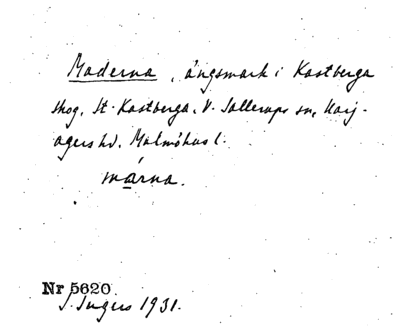 Maderna, ängsmark i Kastberga
skog, St. Kastberga, V. Sallerups sn, Harj-
agers hd. Malmöhus l.
márna.
Nr 5620
S. Ingers 1931.